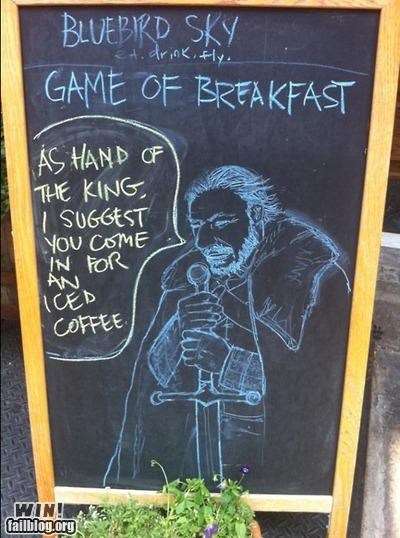 BLUEBIRD SKY
eat. drink. fly.
GAME OF BREAKFAST
AS HAND OF
THE KING,
I SUGGEST
YOU COME
IN FOR
AN
ICED
COFFEE.
WIN!
failblog.org